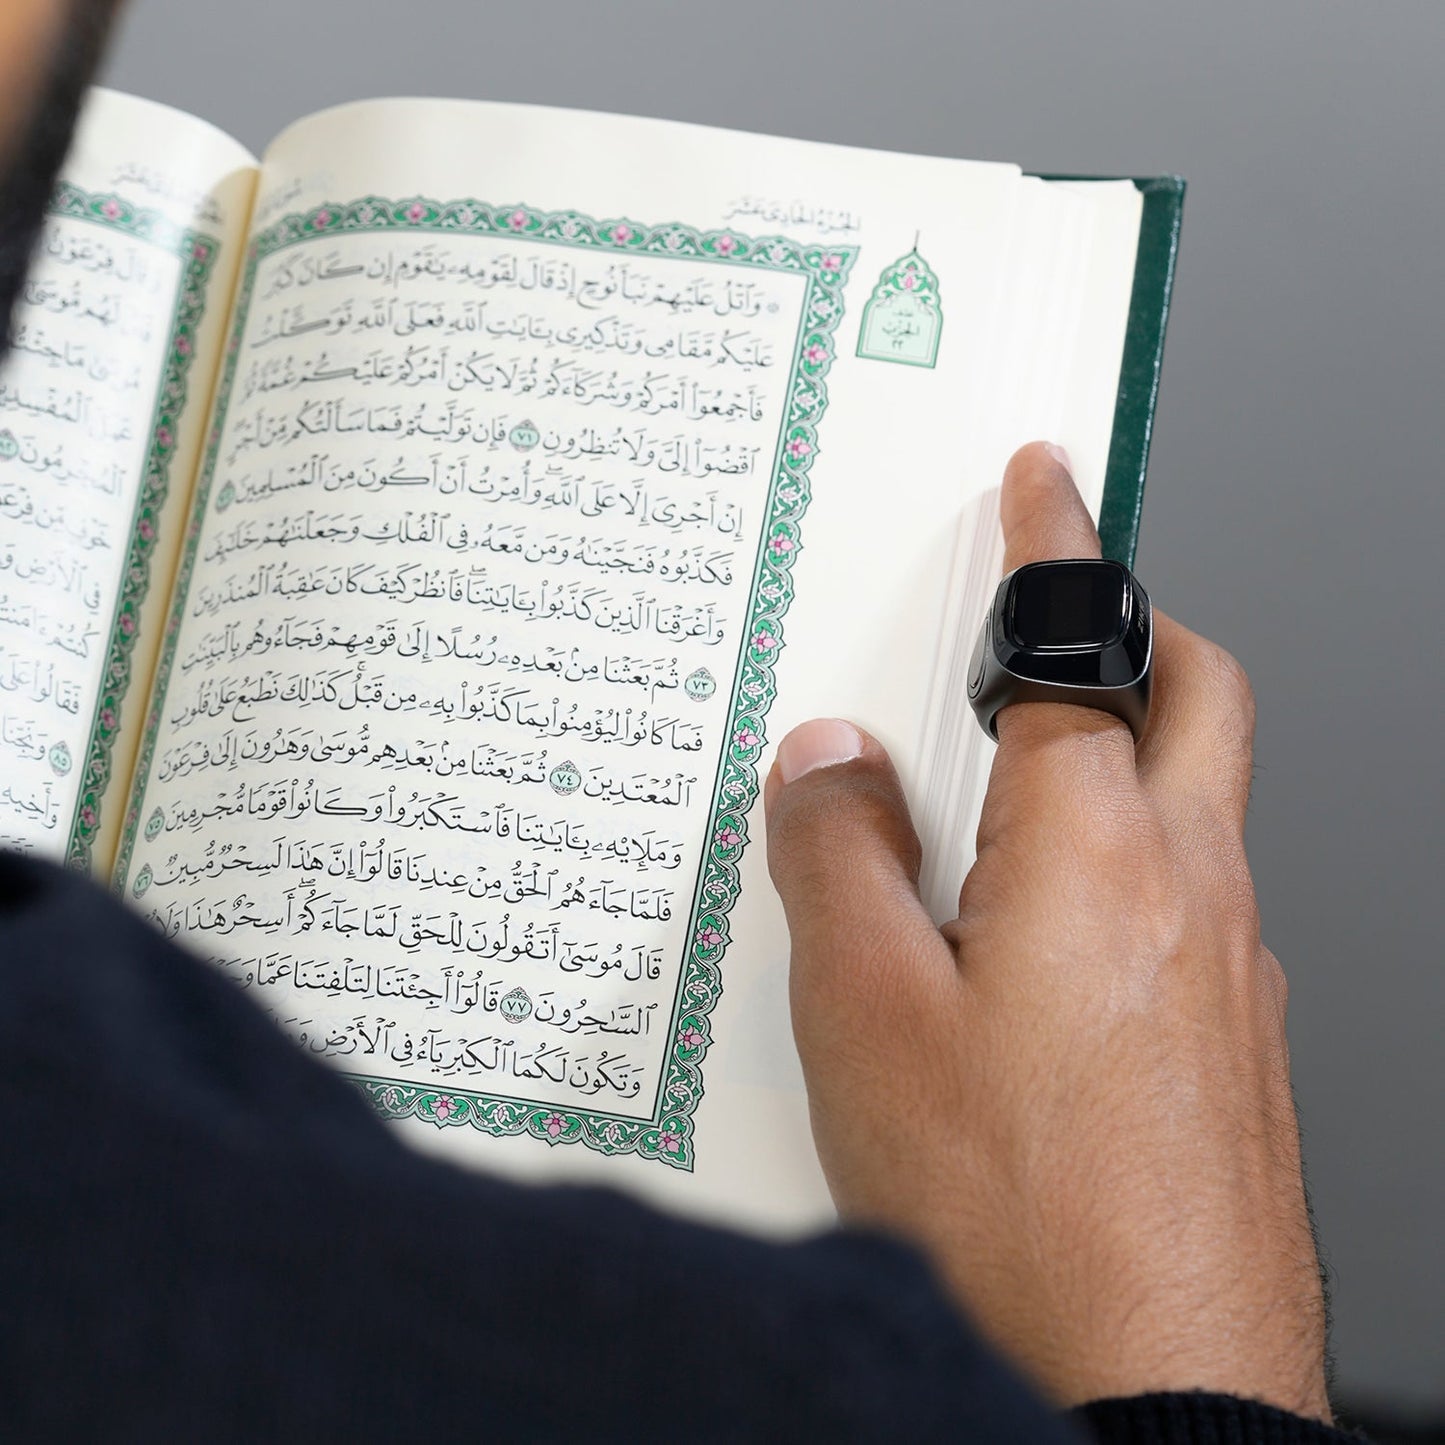 الجُزْءُ الحَادِي عَشَرَ
۞ وَٱتۡلُ عَلَيۡهِمۡ نَبَأَ نُوحٍ إِذۡ قَالَ لِقَوۡمِهِۦ يَٰقَوۡمِ إِن كَانَ كَبُرَ
عَلَيۡكُم مَّقَامِي وَتَذۡكِيرِي بِـَٔايَٰتِ ٱللَّهِ فَعَلَى ٱللَّهِ تَوَكَّلۡتُ
فَأَجۡمِعُوٓاْ أَمۡرَكُمۡ وَشُرَكَآءَكُمۡ ثُمَّ لَا يَكُنۡ أَمۡرُكُمۡ عَلَيۡكُمۡ غُمَّةٗ
ٱقۡضُوٓاْ إِلَيَّ وَلَا تُنظِرُونِ ٧١ فَإِن تَوَلَّيۡتُمۡ فَمَا سَأَلۡتُكُم مِّنۡ أَجۡرٍۖ
إِنۡ أَجۡرِيَ إِلَّا عَلَى ٱللَّهِۖ وَأُمِرۡتُ أَنۡ أَكُونَ مِنَ ٱلۡمُسۡلِمِينَ
فَكَذَّبُوهُ فَنَجَّيۡنَٰهُ وَمَن مَّعَهُۥ فِي ٱلۡفُلۡكِ وَجَعَلۡنَٰهُمۡ خَلَٰٓئِفَ
وَأَغۡرَقۡنَا ٱلَّذِينَ كَذَّبُواْ بِـَٔايَٰتِنَاۖ فَٱنظُرۡ كَيۡفَ كَانَ عَٰقِبَةُ ٱلۡمُنذَرِينَ
٧٣ ثُمَّ بَعَثۡنَا مِنۢ بَعۡدِهِۦ رُسُلًا إِلَىٰ قَوۡمِهِمۡ فَجَآءُوهُم بِٱلۡبَيِّنَٰتِ
فَمَا كَانُواْ لِيُؤۡمِنُواْ بِمَا كَذَّبُواْ بِهِۦ مِن قَبۡلُۚ كَذَٰلِكَ نَطۡبَعُ عَلَىٰ قُلُوبِ
ٱلۡمُعۡتَدِينَ ٧٤ ثُمَّ بَعَثۡنَا مِنۢ بَعۡدِهِم مُّوسَىٰ وَهَٰرُونَ إِلَىٰ فِرۡعَوۡنَ
وَمَلَإِيْهِۦ بِـَٔايَٰتِنَا فَٱسۡتَكۡبَرُواْ وَكَانُواْ قَوۡمٗا مُّجۡرِمِينَ ٧٥
فَلَمَّا جَآءَهُمُ ٱلۡحَقُّ مِنۡ عِندِنَا قَالُوٓاْ إِنَّ هَٰذَا لَسِحۡرٞ مُّبِينٞ ٧٦
قَالَ مُوسَىٰٓ أَتَقُولُونَ لِلۡحَقِّ لَمَّا جَآءَكُمۡۖ أَسِحۡرٌ هَٰذَا وَلَا
ٱلسَّٰحِرُونَ ٧٧ قَالُوٓاْ أَجِئۡتَنَا لِتَلۡفِتَنَا عَمَّا
وَتَكُونَ لَكُمَا ٱلۡكِبۡرِيَآءُ فِي ٱلۡأَرۡضِ
الحزب
٢٢
قَالَ فِرۡعَوۡنُ
لَهُم مُّوسَىٰٓ
ٱلۡمُفۡسِدِينَ
ٱلۡمُجۡرِمُونَ
خَوۡفٖ مِّن فِرۡعَوۡنَ
فِي ٱلۡأَرۡضِ
كُنتُمۡ ءَامَنتُم
فَقَالُواْ عَلَى
٨٥ وَنَجِّنَا
وَأَخِيهِ